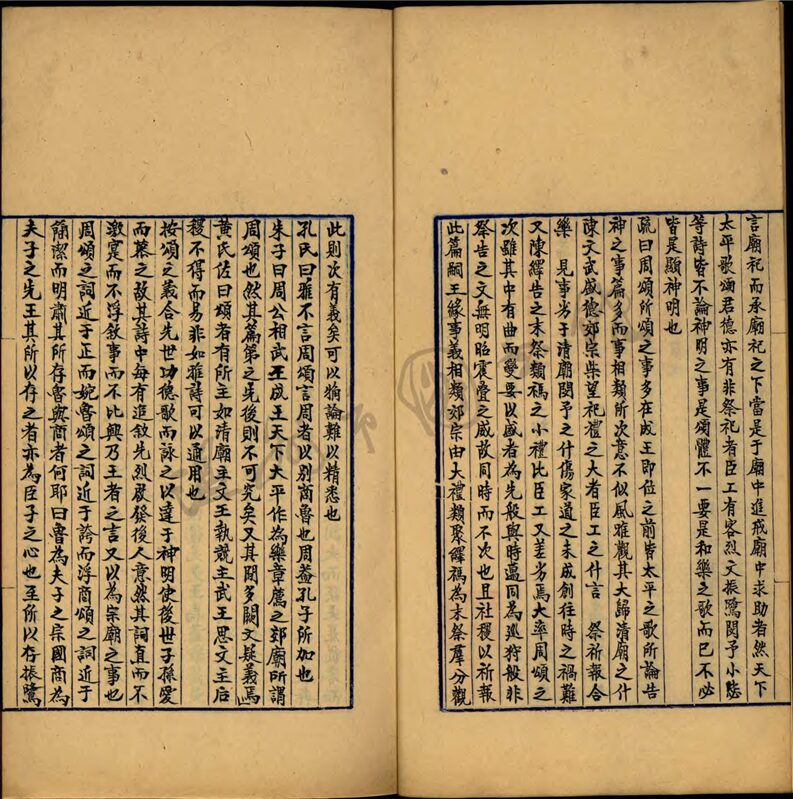 言廟祀而承廟祀之下當是于廟中進戒廟中求助者然天下
太平歌頌君德亦有非祭祀者臣工有客烈文振鷺閔予小毖
等詩皆不論神明之事是頌體不一要是和樂之歌而已不必
皆是顯神明也
疏曰周頌所頌之事多在成王即位之前皆太平之歌所論告
神之事篇多而事相類所次意不似風雅觀其大歸清廟之什
陳文武盛德郊宗柴望祀禮之大者臣工之什言 祭祈報合
樂 見事劣于清廟閔予之什傷家道之未成創往時之禍難
又陳繹告之末祭類禡之小禮比臣工又差劣焉大率周頌之
次雖其中有曲而變要以盛者為先般與時邁同為巡狩般非
祭告之文無明昭震疊之威故同時而不次也且社稷以祈報
此篇嗣王緣事義相類郊宗由大禮類聚繹禡為末祭羣分觀
此則次有義矣可以㮣論難以精悉也
孔氏曰雅不言周頌言周者以别商魯也周蓋孔子所加也
朱子曰周公相武王成王天下太平作為樂章薦之郊廟所謂
周頌也然其篇第之先後則不可究矣又其間多闕文疑義焉
黃氏佐曰頌者有所主如清廟主文王執競主武王思文主后
稷不得而易非如雅詩可以通用也
按頌之義合先世功德歌而詠之以達于神明使後世子孫愛
而慕之故其詩中每有追敘先烈啟發後人意然其詞直而不
激寔而不浮敘事而不比興乃王者之言又以為宗廟之事也
周頌之詞近于正而婉魯頌之詞近于誇而浮商頌之詞近于
簡潔而明肅其所存魯與商者何耶曰魯為夫子之宗國商為
夫子之先王其所以存之者亦為臣子之心也至所以存振鷺